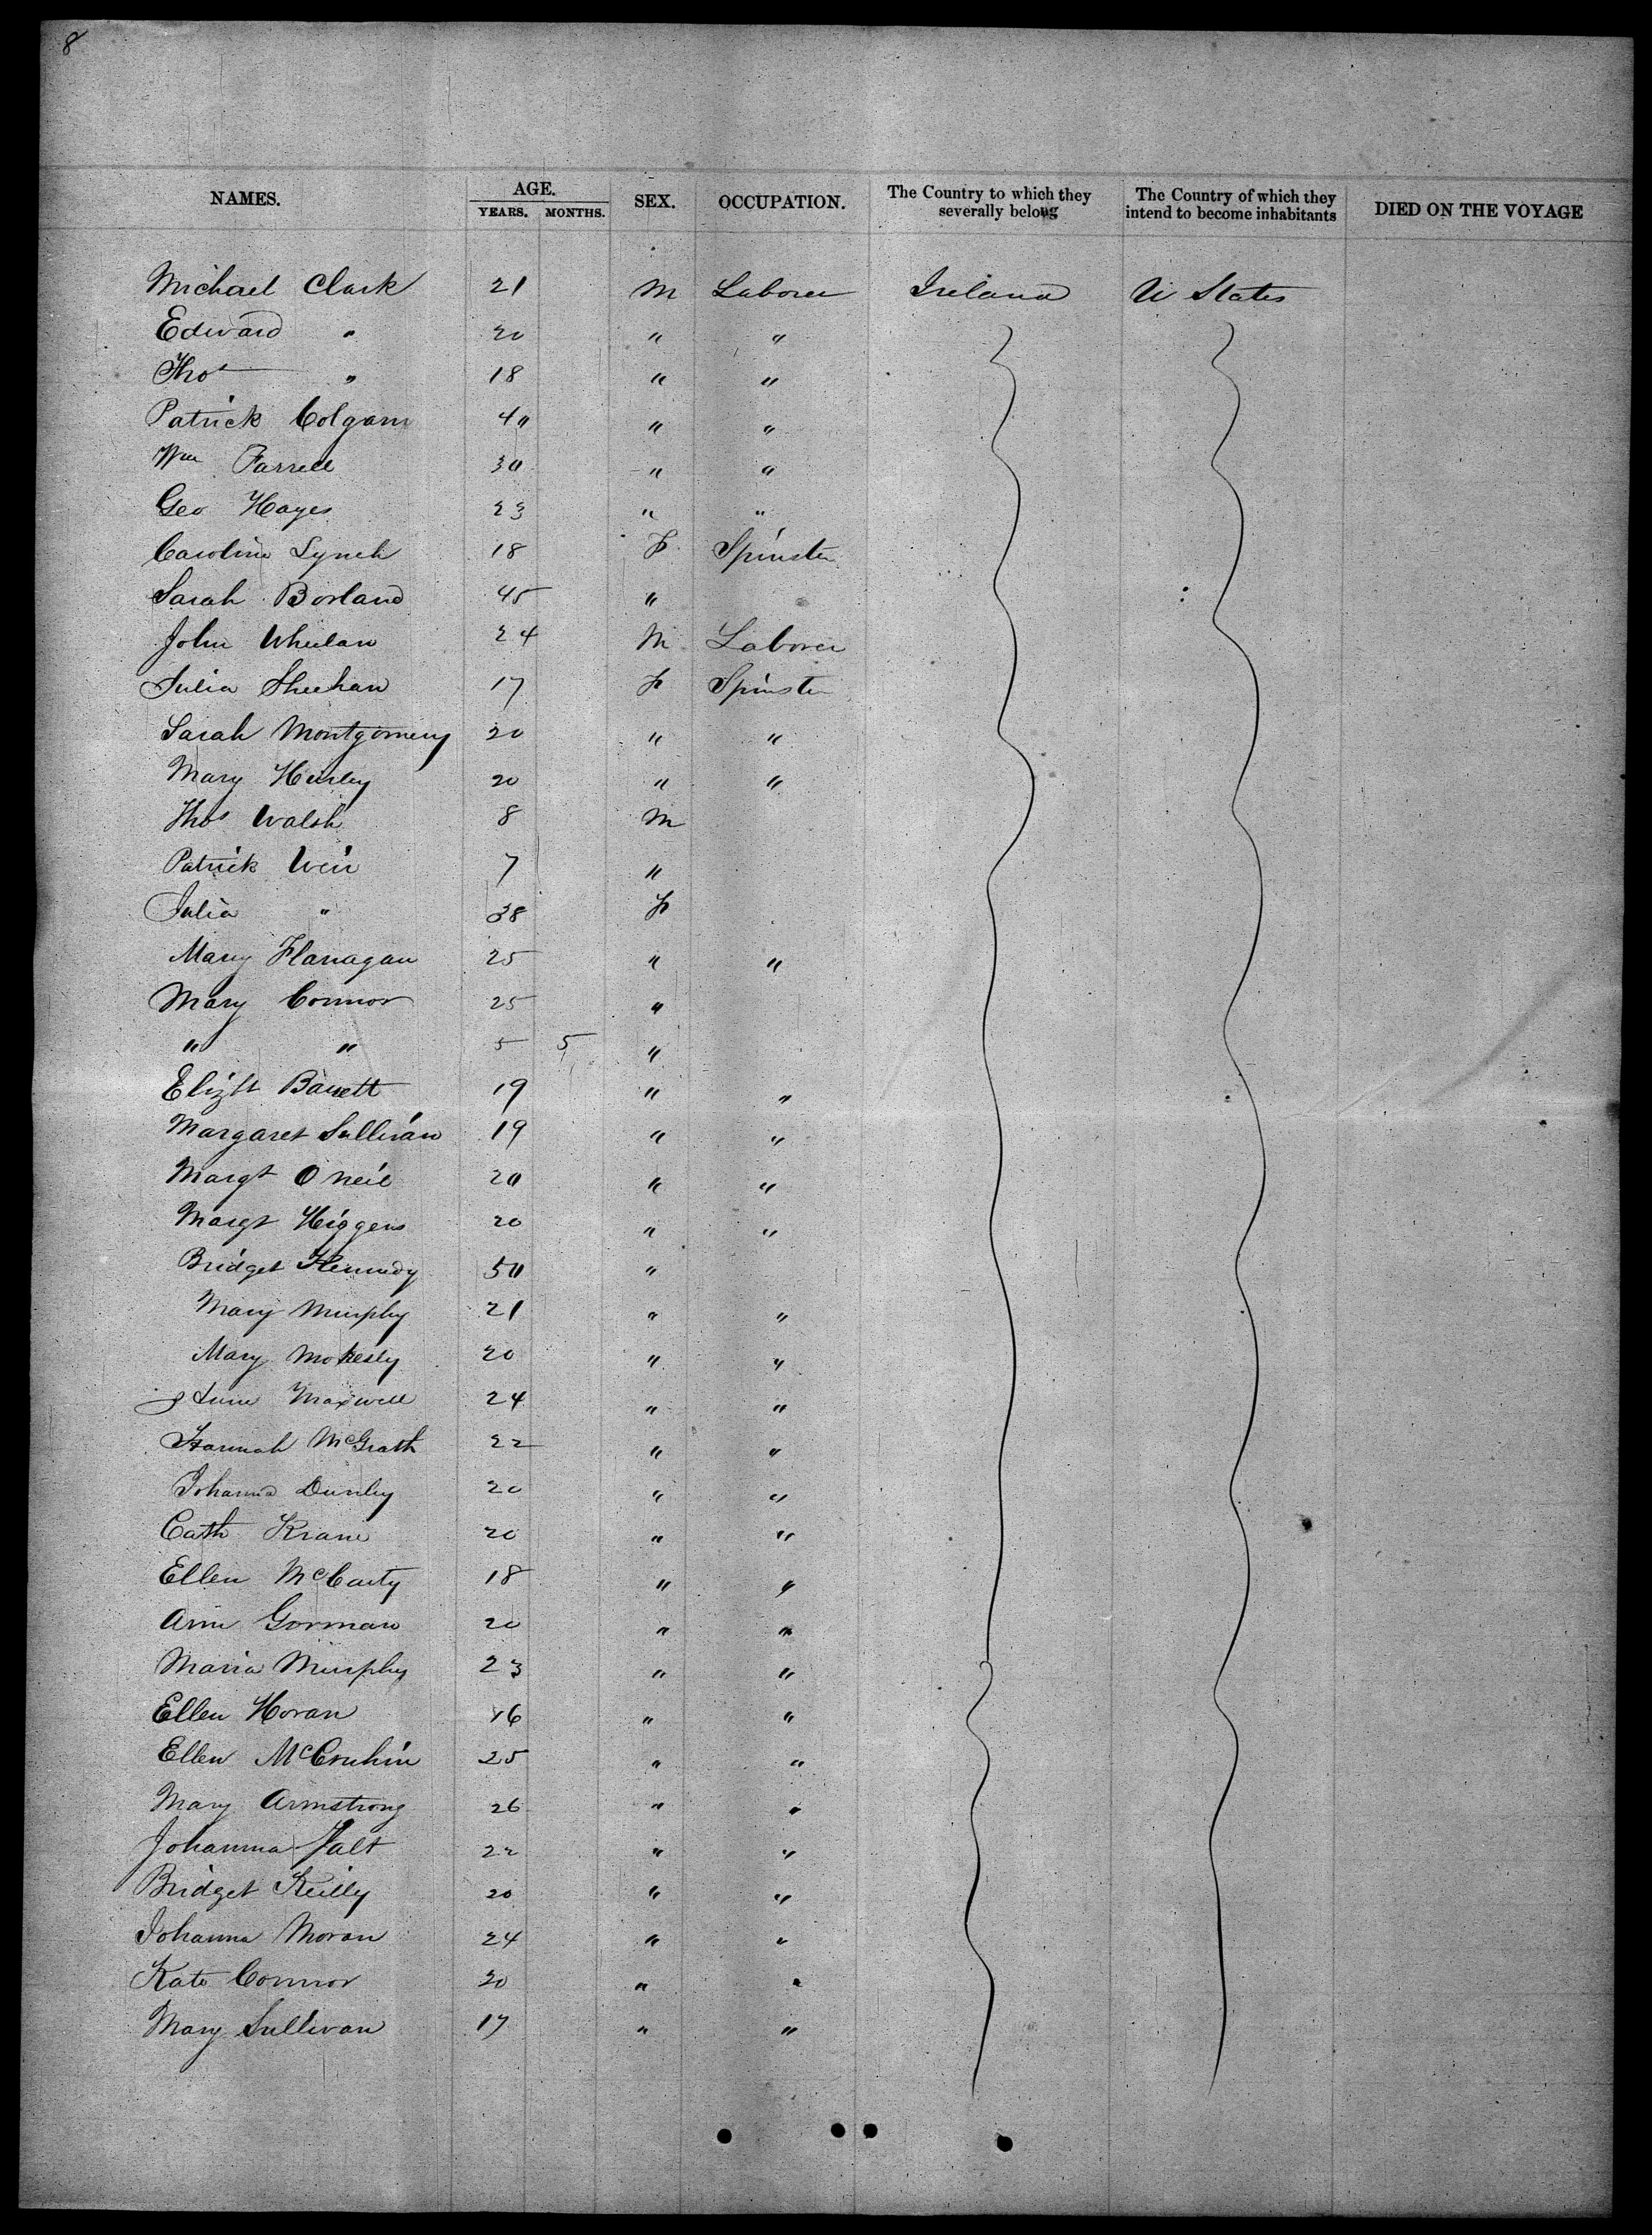 8
NAMES. AGE. YEARS. MONTHS. SEX. OCCUPATION. The Country to which they severally belong The Country of which they intend to become inhabitants DIED ON THE VOYAGE
Michael Clark 21 M Laborer Ireland U States
Edward " 20 " "
Thos " 18 " "
Patrick Colgan 40 " "
Wm Farrell 30 " "
Geo Hayes 23 " "
Caroline Lynch 18 F Spinster
Sarah Borland 45 "
John Whelan 24 M Laborer
Julia Sheehan 17 F Spinster
Sarah Montgomery 20 " "
Mary Hurley 20 " "
Thos Walsh 8 M
Patrick Weir 7 "
Julia " 38 F
Mary Flanagan 25 " "
Mary Connor 25 "
" " 5 5 "
Elizbt Barrett 19 " "
Margaret Sullivan 19 " "
Margt O Neil 20 " "
Margt Higgens 20 " "
Bridget Kennedy 50 "
Mary Murphy 21 " "
Mary 20 " "
Maxwell 24 " "
Hannah McGrath 22 " "
Johanna 20 " "
Cath Krane 20 " "
Ellen McCarty 18 " "
Ann Gorman 20 " "
Maria Murphy 23 " "
Ellen Horan 16 " "
Ellen 25 " "
Mary Armstrong 26 " "
Johanna 22 " "
Bridget Reilly 20 " "
Johanna Moran 24 " "
Kate Connor 20 " "
Mary Sullivan 17 " "